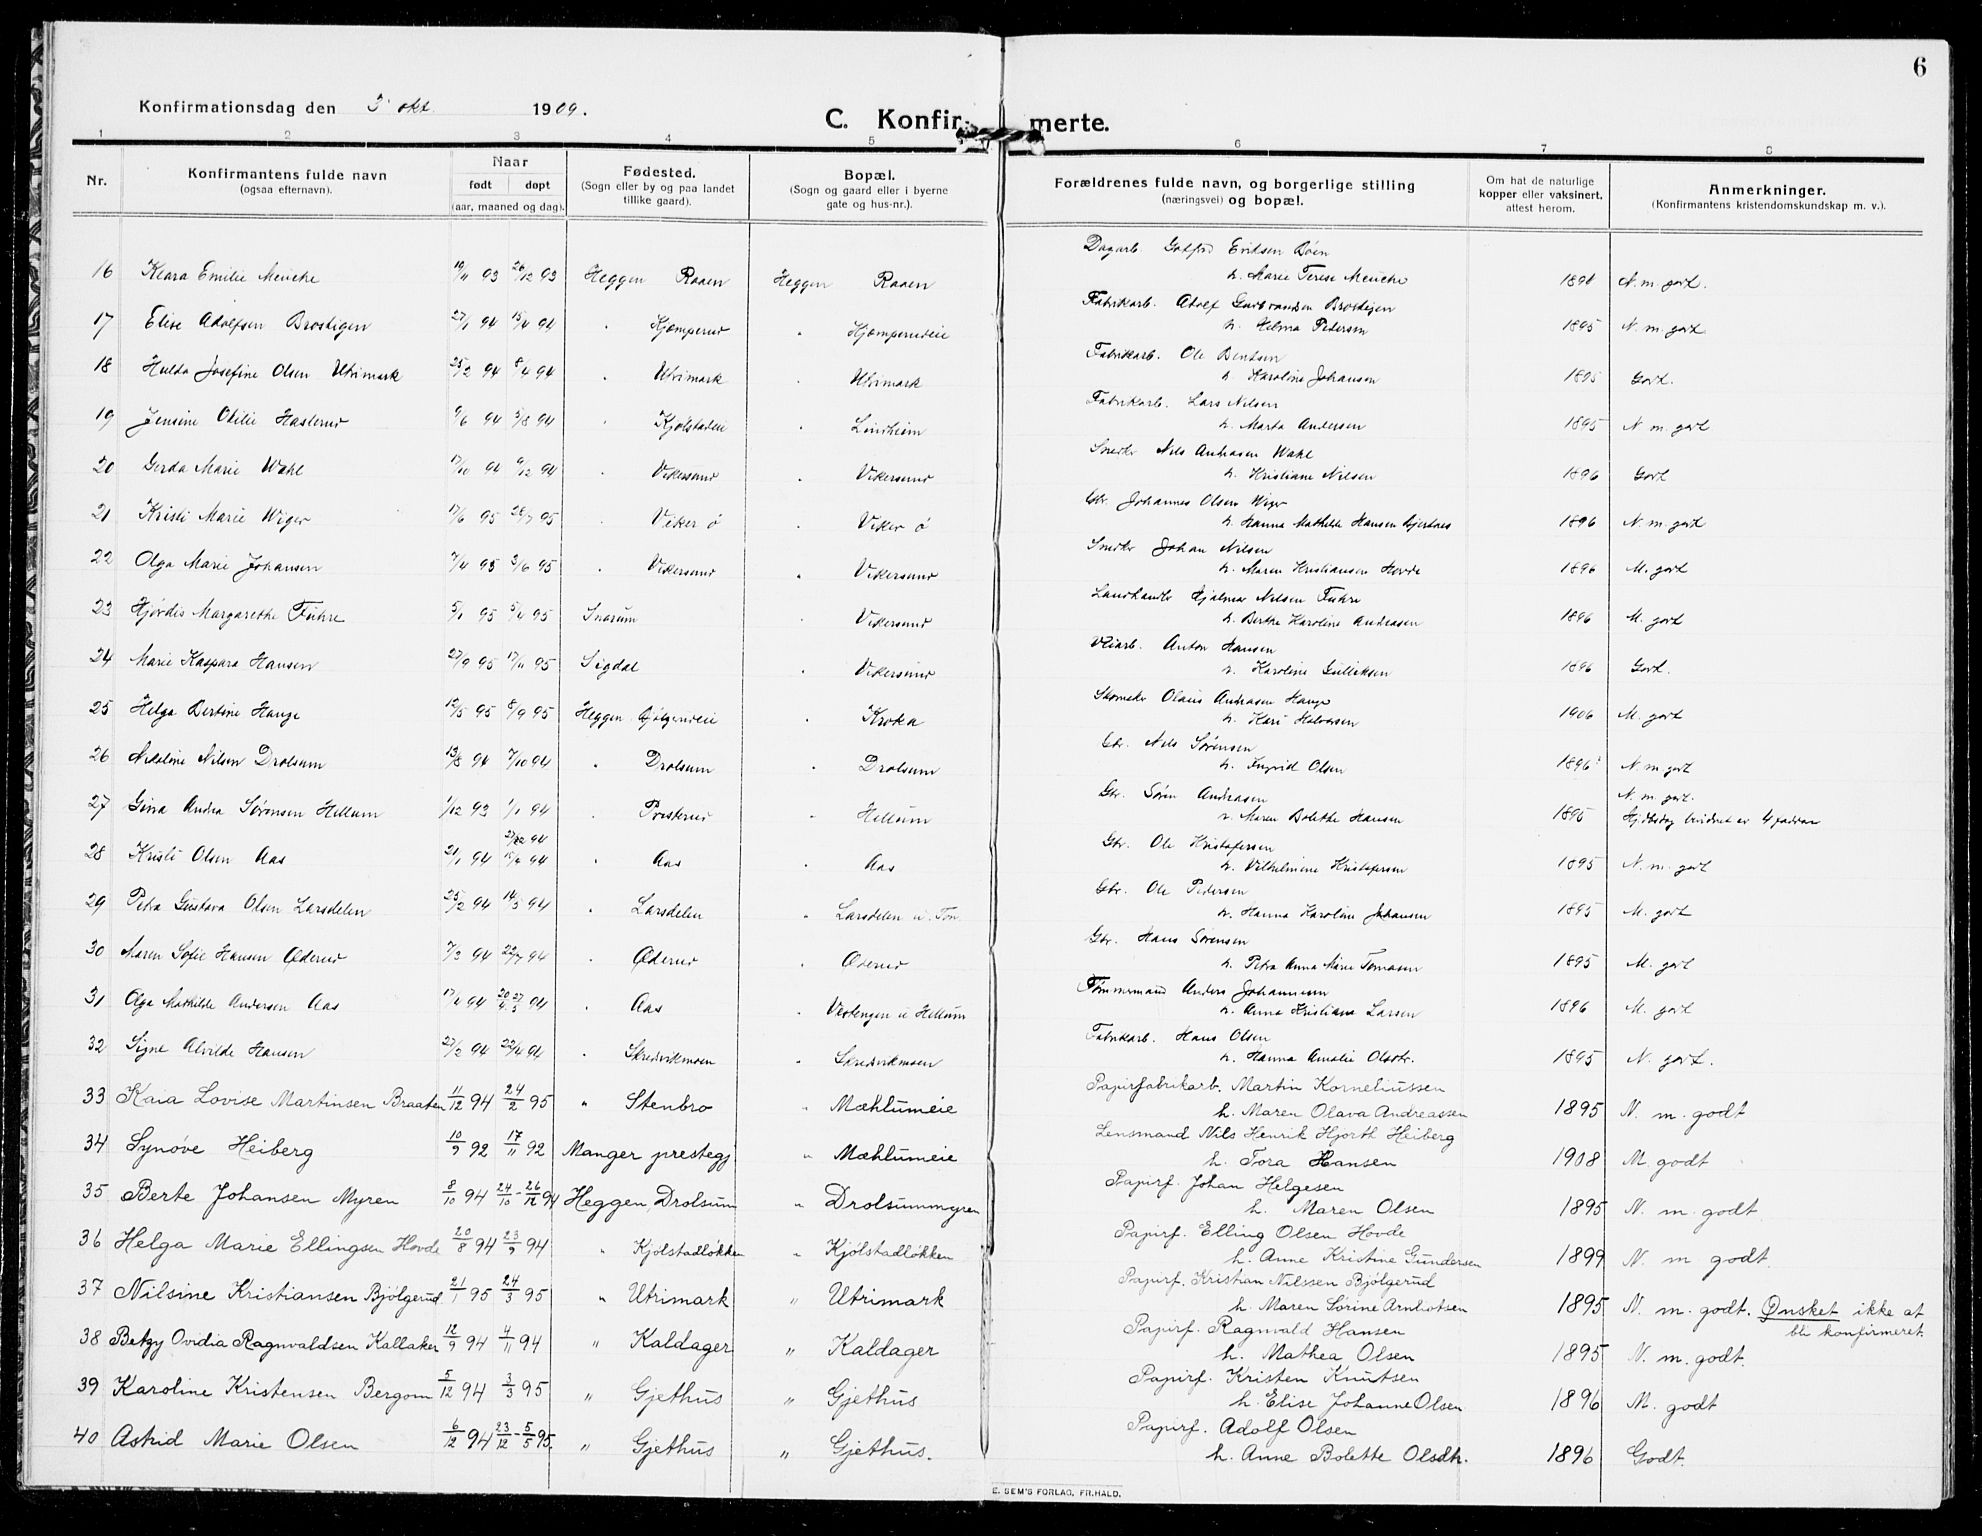 6
Konfirmationsdag den 3 okt. 1909.
C. Konfirmerte.
1 2 3 4 5 6 7 8
Nr. Konfirmantens fulde navn (ogsaa efternavn). Naar født døpt (aar, maaned og dag). Fødested. (Sogn eller by og paa landet tillike gaard). Bopæl. (Sogn og gaard eller i byerne gate og hus-nr.). Forældrenes fulde navn, og borgerlige stilling (næringsvei) og bopæl. Om hat de naturlige kopper eller vaksinert, attest herom. Anmerkninger. (Konfirmantens kristendomskundskap m. v.).
Dagarb. Gotfred Eriksen Bøen
16 Klara Emilie Meucke 19/11 93 26/12 93 Heggen Raaen Heggen Raaen h. Marie Terese Meucke 1898 N. m. godt.
Fabrikarb. Adolf Gulbrandsen Brostigen
17 Elise Adolfsen Brostigen 27/1 94 15/4 94 " Kjæmperud " Kjæmperudeie h. Helma Pedersen 1895 N. m. godt
Fabrikarb. Ole Bentsen
18 Hulda Josefine Olsen Utrimark 25/2 94 8/4 94 " Utrimark " Utrimark h. Karoline Johansen 1895 Godt.
Fabrikarb. Lars Nilsen
19 Jensine Otilie Haslerud 9/6 94 5/8 94 " Kjølstadeie " Lindheim h. Marta Andersen 1895 N m. godt
Snedkr Nils Andreasen Wahl
20 Gerda Marie Wahl 17/10 94 9/12 94 " Vikersund " Vikersund h. Kristiane Nilsen 1896 Godt
Gbr. Johannes Olsen Wiger
21 Kristi Marie Wiger 17/6 95 28/7 95 " Viker ø " Viker ø h. Hanna Mathilde Hansen Gjertnes 1896 N. m. godt
Snedkr Johan Nilsen
22 Olga Marie Johansen 7/4 95 3/6 95 " Vikersund " Vikersund h. Maren Kristiansen Hovde 1896 M. godt
Landhandlr Hjalmar Nilsen Fuhre
23 Hjørdis Margarethe Fuhre 5/1 95 5/4 95 Snarum " Vikersund h. Berthe Karoline Andreasen 1896 M. godt
Veiarb. Anton Hansen
24 Marie Kaspara Hansen 27/9 95 17/11 95 Sigdal " Vikersund h. Karoline Gulliksen 1896 Godt.
Skomakr Olaus Andreasen Hauge
25 Helga Bertine Hauge 12/5 95 8/9 95 Heggen Bjølgerudeie " Kroka h. Kari Halvorsen 1906 M. godt
Gbr. Nils Sørensen
26 Nikoline Nilsen Drolsum 13/8 94 7/10 94 " Drolsum " Drolsum h. Ingrid Olsen 1896 N. m. godt
Gbr. Søren Andreasen N. m. godt.
27 Gina Andrea Sørensen Hellum 1/12 93 1/1 94 " Presterud " Hellum h. Maren Bolette Hansen 1895 Hj.døbsdag
Gbr. Ole Kristofersen
28 Kristi Olsen Aas 21/1 94 15/4 94 " Aas " Aas h. Vilhelmine Kristofersen 1895 N. m. godt
Gbr. Ole Pedersen
29 Petra Gustava Olsen Larsdelen 25/2 94 14/5 94 " Larsdelen " Larsdelen u. Ton. h. Hanna Karoline Johansen 1895 M. godt
Gbr. Hans Sørensen
30 Maren Sofie Hansen Øderud 7/3 94 22/7 94 " Øderud " Øderud h. Petra Anna Marie Tomasen 1895 M. godt
Tømmermand Anders Johannesen
31 Olga Mathilde Andersen Aas 17/4 94 20/4 27/5 94 " Aas " Vestengen u Hellum h. Anna Kristiana Larsen 1896 M. godt
Fabrikarb. Hans Olsen
32 Signe Alvilde Hansen 27/2 94 22/4 94 " Skredvikmoen " Skredvikmoen h. Hanna Amalie Olsdtr. 1895 N. godt.
Papirfabrikarb. Martin Korneliussen
33 Kaia Lovise Martinsen Braaten 11/12 94 24/2 95 " Stenbro " Mæhlumeie h. Maren Olava Andreassen 1895 N. m. godt
Lensmand Nils Henrik Hjorth Heiberg
34 Synøve Heiberg 10/9 92 17/11 92 Manger prestegj. " Mæhlumeie h. Tora Hansen 1908 M. godt
Papirf. Johan Helgesen
35 Berte Johansen Myren 8/10 94 24/10 - 26/12 94 Heggen, Drolsum " Drolsummyren h. Maren Olsen 1895 N. m. godt
Papirf. Elling Olsen Hovde
36 Helga Marie Ellingsen Hovde 20/8 94 23/9 94 " Kjølstadløkken " Kjølstadløkken h. Anne Kristine Gundersen 1899 N. m godt.
Papirf. Kristian Nilssen Bjølgerud
37 Nilsine Kristiansen Bjølgerud 21/1 95 24/3 95 " Utrimark " Utrimark h. Maren Sørine Arnhotsen 1895 N. m. godt. Ønsket ikke at
Papirf. Ragnvald Hansen bli konfirmeret.
38 Betzy Ovidia Ragnvaldsen Kallaker 12/9 94 4/11 94 " Kaldager " Kaldager h. Mathea Olsen 1895 N. m. godt.
Papirf. Kristen Knutsen
39 Karoline Kristensen Bergom 5/12 94 3/3 95 " Gjethus " Gjethus h. Elise Johanne Olsen 1896 M. godt
Papirf. Adolf Olsen
40 Astrid Marie Olsen 6/12 94 23/12 - 5/5 95. " Gjethus " Gjethus. h. Anne Bolette Olsdtr. 1896 Godt.
E. SEM'S FORLAG, FR.HALD.